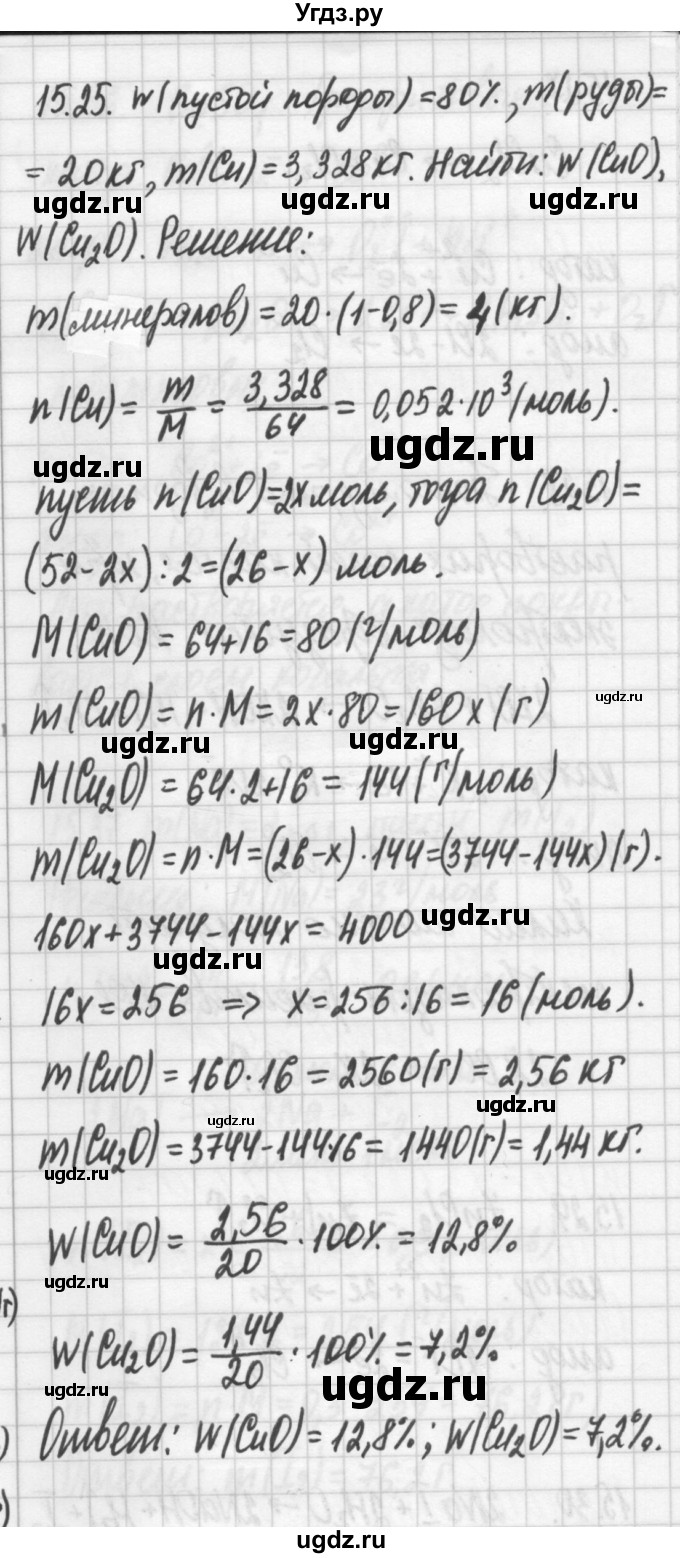 Угдз.ру
15.25. W(пустой породы) = 80%, m(руды)=
= 20 кг, m(Cu) = 3,328 кг. Найти: W(CuO),
ugdz.ru ugdz.ru
W(Cu₂O). Решение:
m(минералов) = 20·(1-0,8) = 4 (кг).
n(Cu) = m/M = 3,328/64 = 0,052·10³ (моль).
ugdz.ru ugdz.ru
пусть n(CuO)=2x моль, тогда n(Cu₂O)=
(52-2x):2=(26-x) моль.
M(CuO) = 64+16 = 80 (г/моль)
ugdz.ru
m(CuO) = n·M = 2x·80 = 160x (г)
ugdz.ru ugdz.ru
M(Cu₂O) = 64·2+16 = 144 (г/моль)
m(Cu₂O) = n·M = (26-x)·144 = (3744-144x) (г).
160x + 3744 - 144x = 4000
ugdz.ru ugdz.ru
16x = 256 => x = 256:16 = 16 (моль).
m(CuO) = 160·16 = 2560 (г) = 2,56 кг
ugdz.ru ugdz.ru
m(Cu₂O) = 3744-144·16 = 1440 (г) = 1,44 кг.
ugdz.ru
W(CuO) = 2,56/20 · 100% = 12,8%
ugdz.ru
W(Cu₂O) = 1,44/20 · 100% = 7,2%
ugdz.ru ugdz.ru
Ответ: W(CuO) = 12,8%; W(Cu₂O) = 7,2%.
ugdz.ru